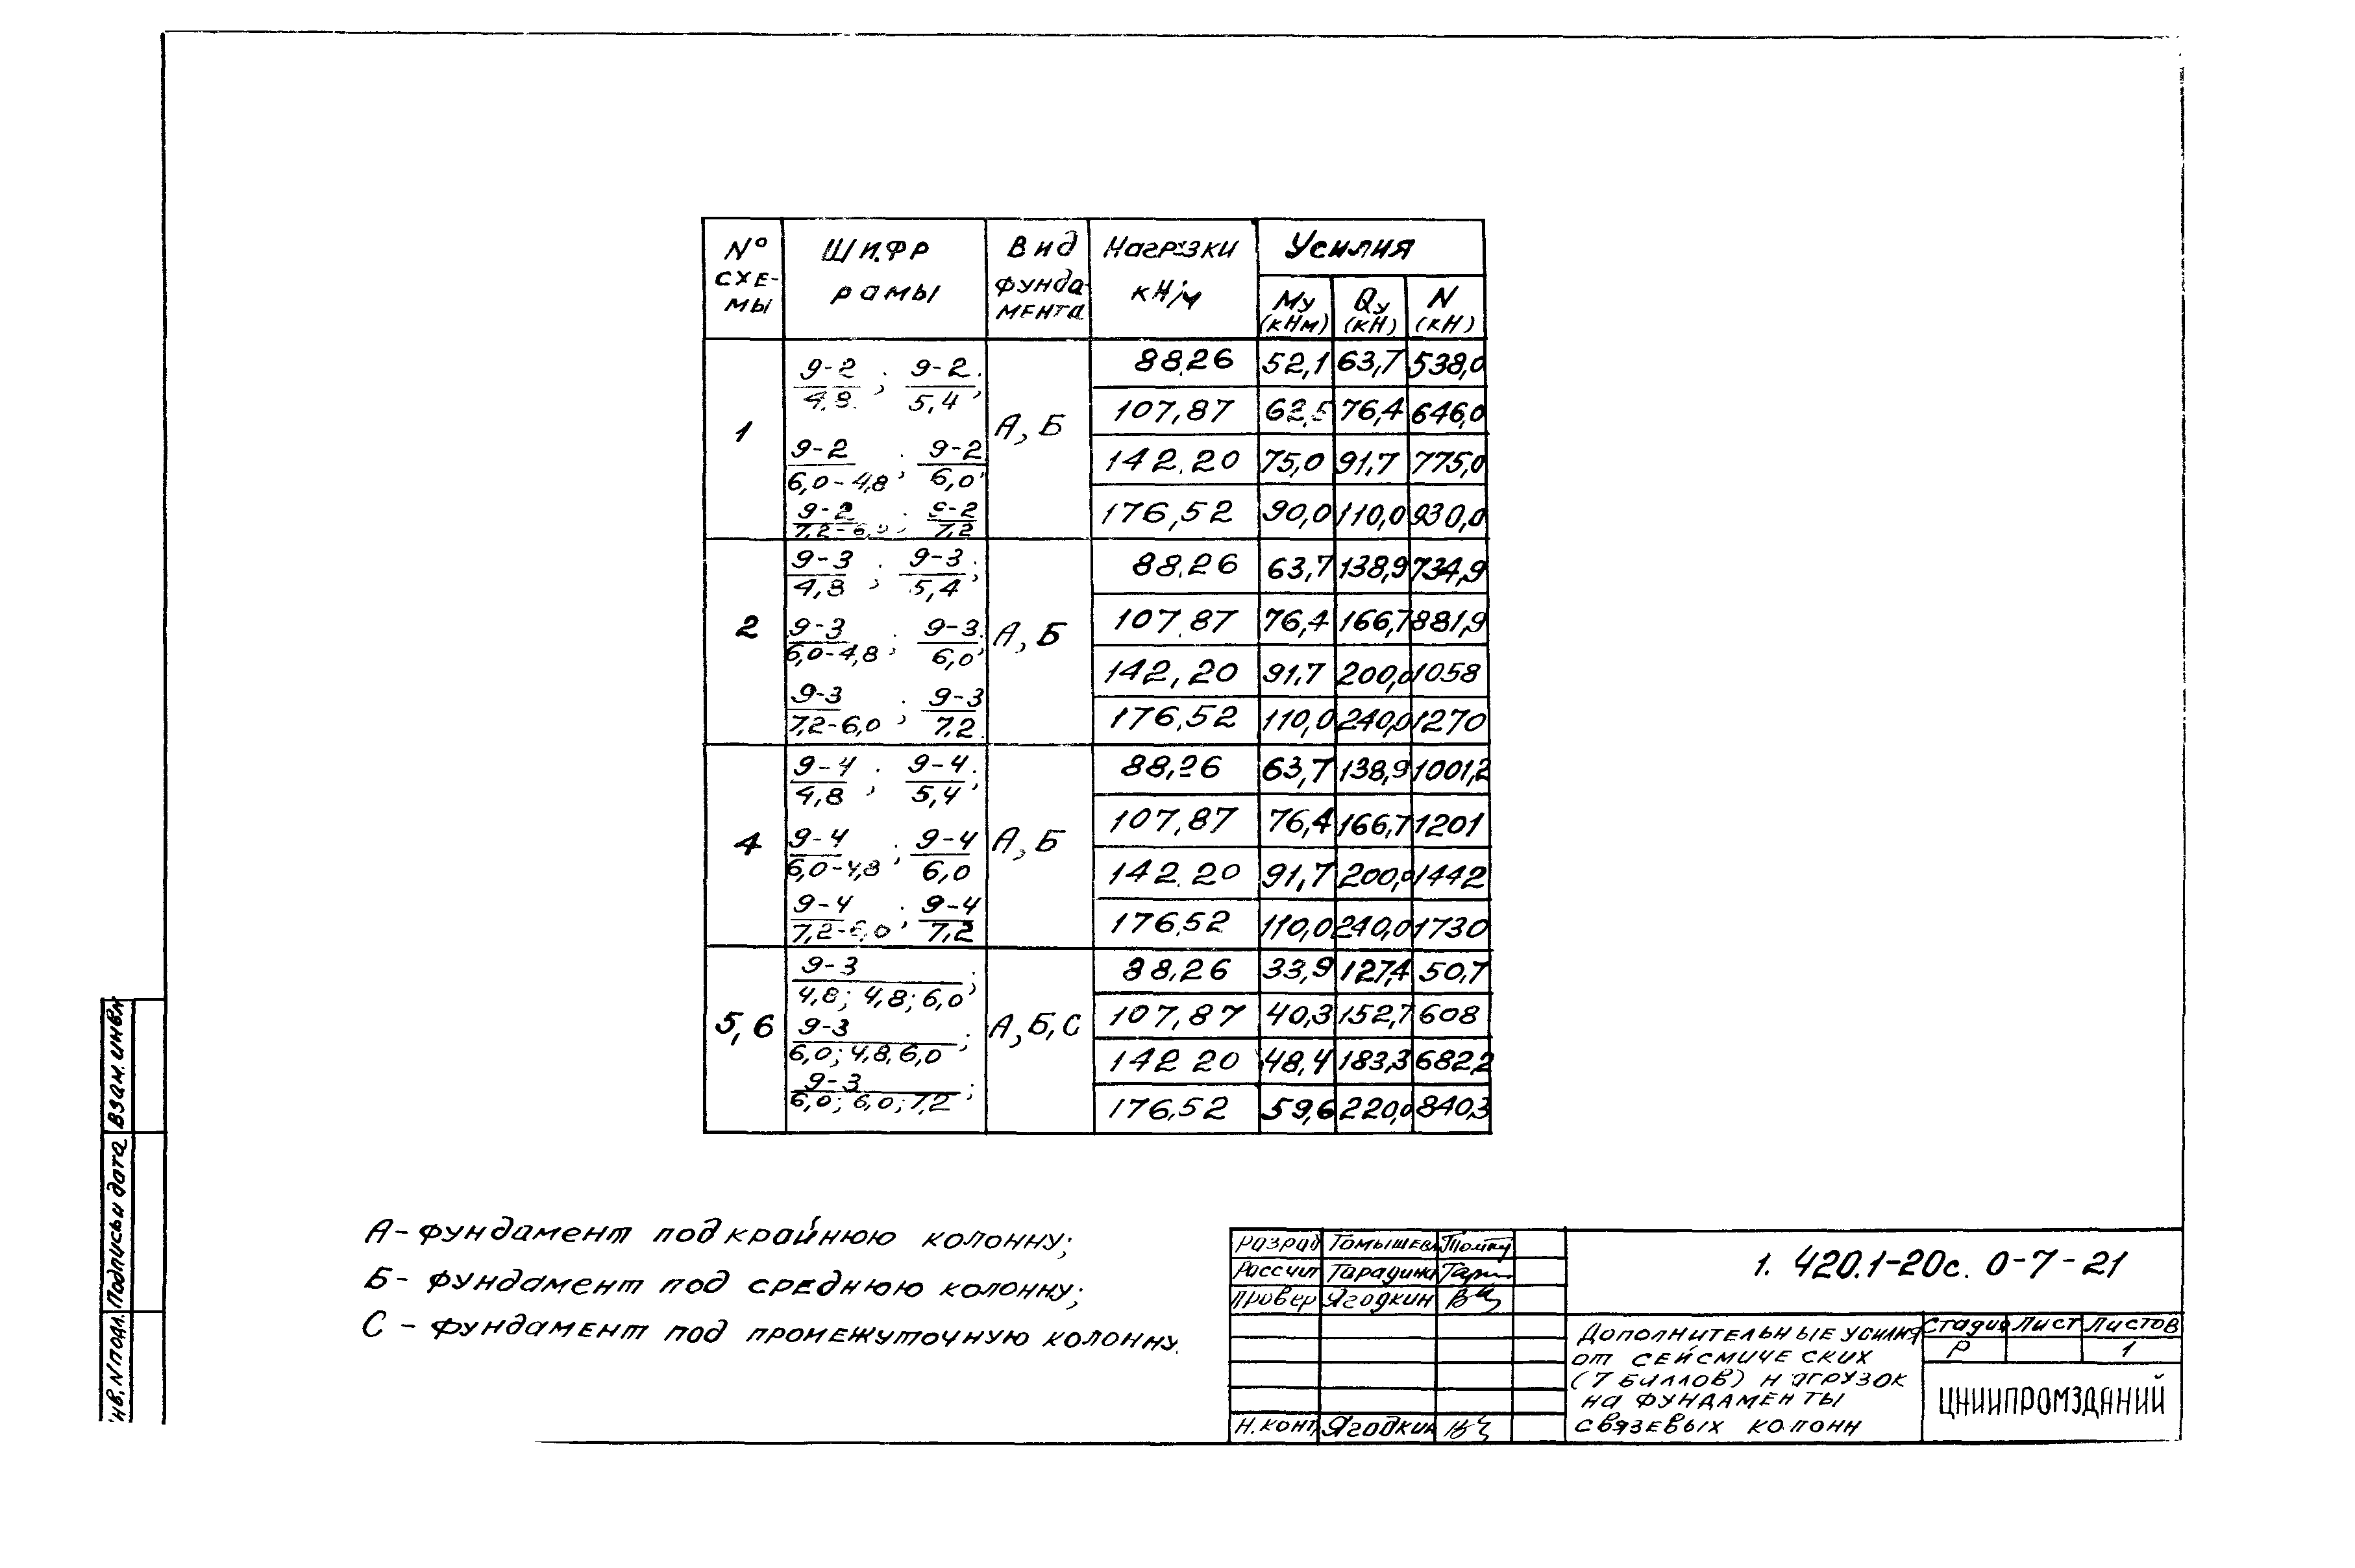 № схе-мы | Шифр рамы | Вид фунда-мента | Нагрузки кН/м | Усилия
Му (кНм) | Qу (кН) | N (кН)
1
9-2/4,8 ; 9-2/5,4 ;
9-2/6,0-4,8 ; 9-2/6,0 ;
9-2/7,2-6,0 ; 9-2/7,2
А, Б
88,26 | 52,1 | 63,7 | 538,0
107,87 | 62,5 | 76,4 | 646,0
142,20 | 75,0 | 91,7 | 775,0
176,52 | 90,0 | 110,0 | 930,0
2
9-3/4,8 ; 9-3/5,4 ;
9-3/6,0-4,8 ; 9-3/6,0 ;
9-3/7,2-6,0 ; 9-3/7,2
А, Б
88,26 | 63,7 | 138,9 | 734,9
107,87 | 76,4 | 166,7 | 881,9
142,20 | 91,7 | 200,0 | 1058
176,52 | 110,0 | 240,0 | 1270
4
9-4/4,8 ; 9-4/5,4 ;
9-4/6,0-4,8 ; 9-4/6,0
9-4/7,2-6,0 ; 9-4/7,2
А, Б
88,26 | 63,7 | 138,9 | 1001,2
107,87 | 76,4 | 166,7 | 1201
142,20 | 91,7 | 200,0 | 1442
176,52 | 110,0 | 240,0 | 1730
5, 6
9-3/4,8; 4,8; 6,0 ;
9-3/6,0; 4,8, 6,0 ;
9-3/6,0; 6,0; 7,2 ;
А, Б, С
88,26 | 33,9 | 127,4 | 50,7
107,87 | 40,3 | 152,7 | 608
142 20 | 48,4 | 183,3 | 682,2
176,52 | 59,6 | 220,0 | 840,3
А- фундамент под крайнюю колонну;
Б- фундамент под среднюю колонну;
С - фундамент под промежуточную колонну.
Разраб | Томышева
Рассчит | Тарадина
Провер | Ягодкин
Н.конт | Ягодкин
1. 420.1-20с. 0-7-21
Дополнительные усилия
от сейсмических
(7 биллов) нагрузок
на фундаменты
связевых колонн
Стадия | Лист | Листов
Р | 1
ЦНИИПРОМЗДАНИЙ
Инв.N подл. | Подпись и дата | Взам. инв.N